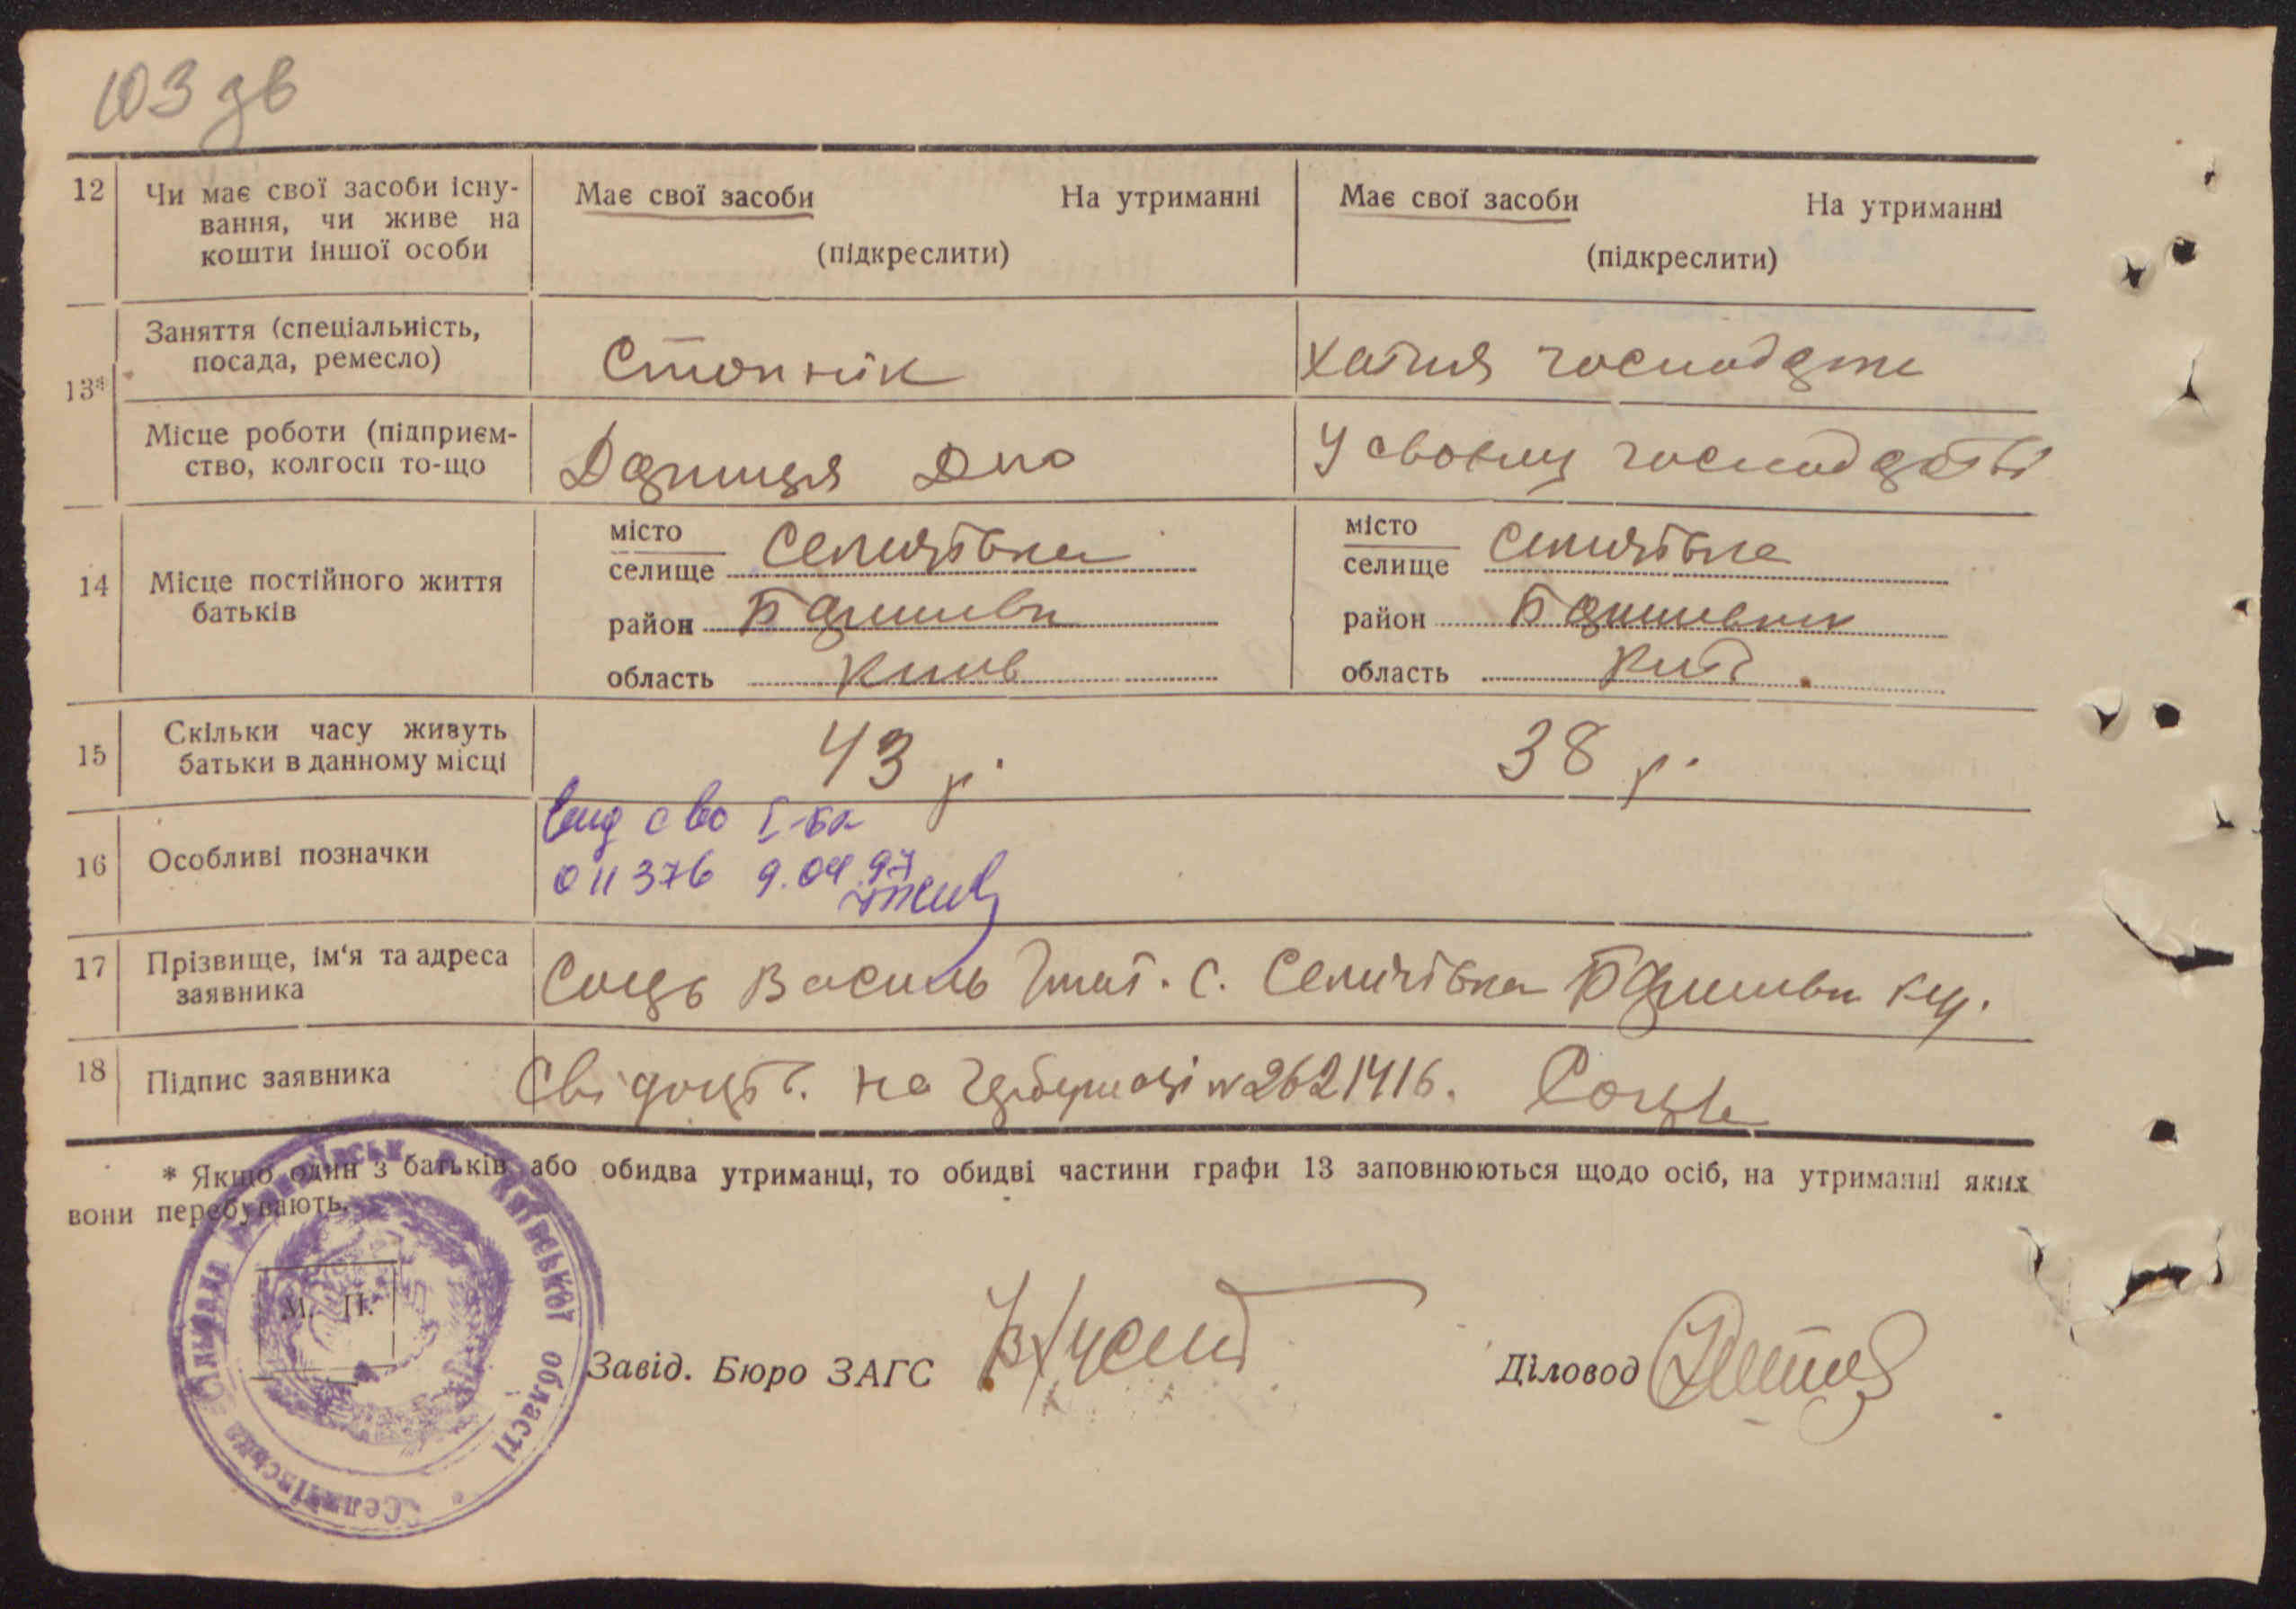 103 зв
12 Чи має свої засоби існу-
вання, чи живе на
кошти іншої особи
Має свої засоби На утриманні
(підкреслити)
Має свої засоби На утриманні
(підкреслити)
13* Заняття (спеціальність,
посада, ремесло)
хатня
Місце роботи (підприєм-
ство, колгосп то-що
Дарниця
У своєму господарстві
14 Місце постійного життя
батьків
місто
селище Селичівка
район Баришівк
область Київ
місто
селище Селичівка
район Баришівки
область Київ
15 Скільки часу живуть
батьки в данному місці
43 р.
38 р.
16 Особливі позначки
011376 9.04.97
17 Прізвище, ім'я та адреса
заявника
Василь с. Селичівка Баришівк
18 Підпис заявника
на №2621416.
* Якщо один з батьків або обидва утриманці, то обидві частини графи 13 заповнюються щодо осіб, на утриманні яких
вони перебувають.
Селичівська Сільрада Київської області
М. П.
Завід. Бюро ЗАГС
Діловод